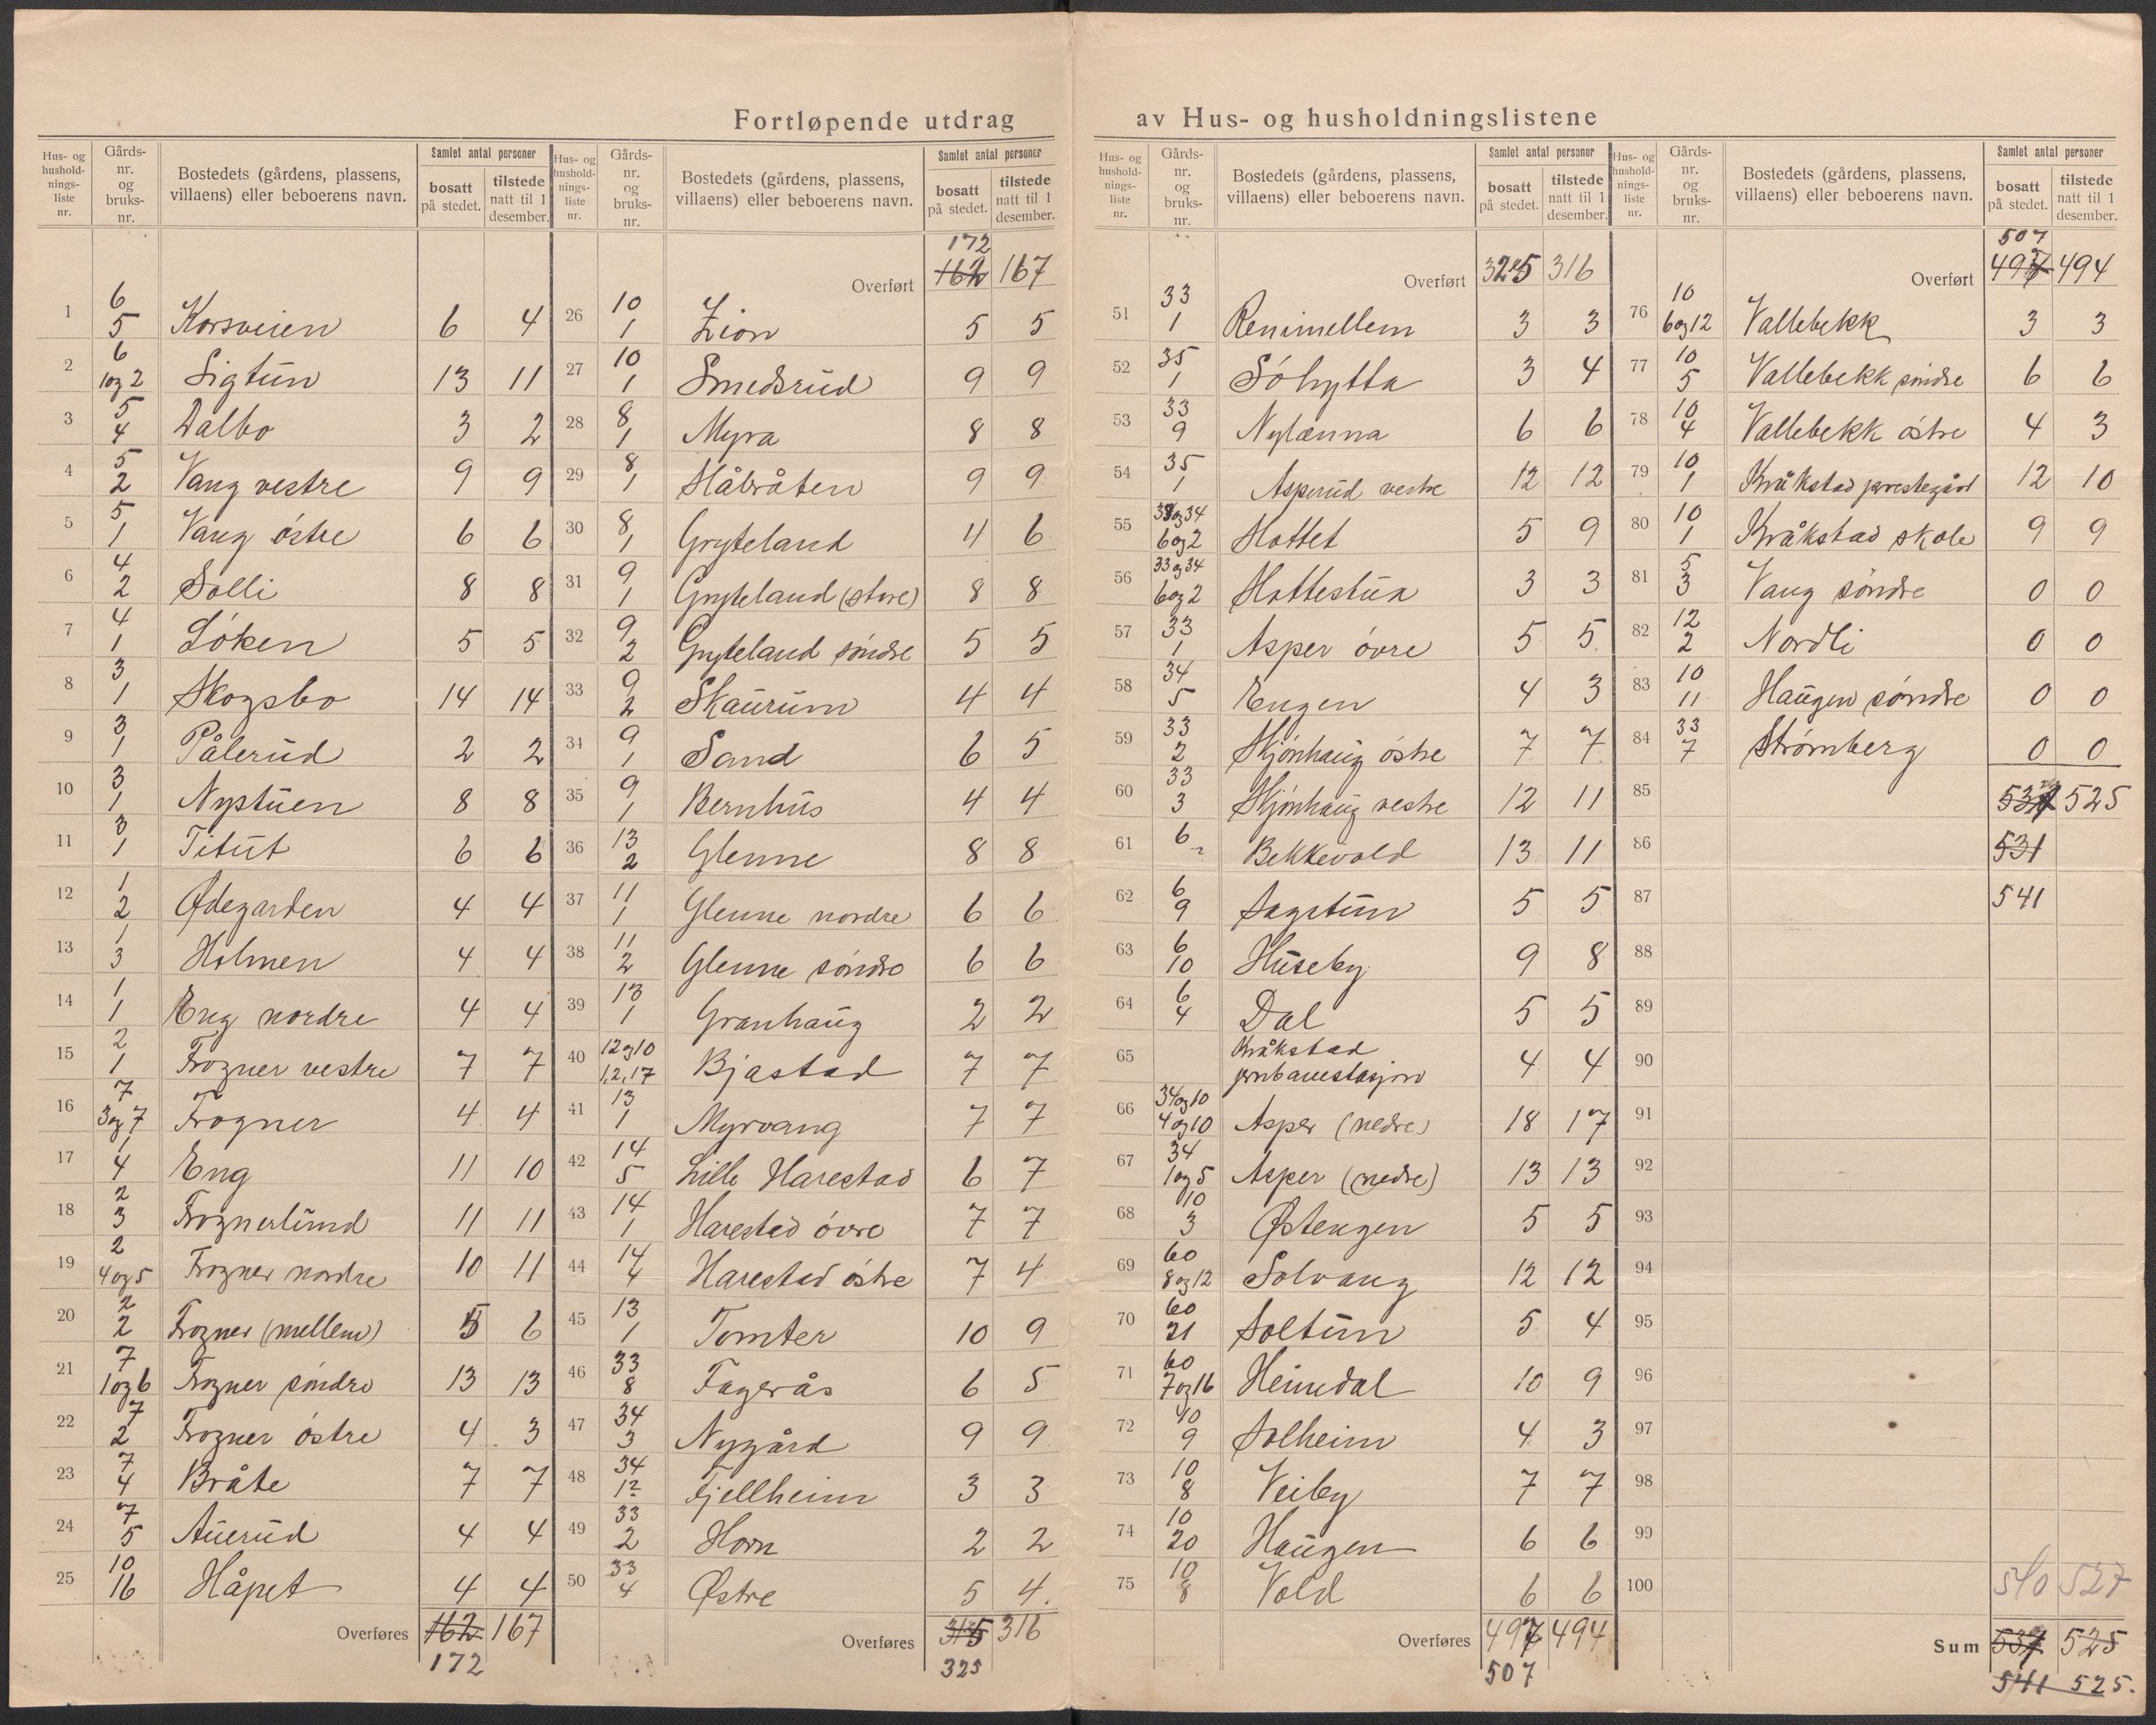 Fortløpende utdrag av Hus- og husholdningslistene
Hus- og husholdningsliste nr. | Gårds-nr. og bruks-nr. | Bostedets (gårdens, plassens, villaens) eller beboerens navn. | Samlet antal personer: bosatt på stedet. | tilstede natt til 1 desember.
1 | 6 / 5 | Korsveien | 6 | 4
2 | 6 / 1og2 | Sigtun | 13 | 11
3 | 5 / 4 | Dalbo | 3 | 2
4 | 5 / 2 | Vang vestre | 9 | 9
5 | 5 / 1 | Vang östre | 6 | 6
6 | 4 / 2 | Solli | 8 | 8
7 | 4 / 1 | Löken | 5 | 5
8 | 3 / 1 | Skogsbo | 14 | 14
9 | 3 / 1 | Pålerud | 2 | 2
10 | 3 / 1 | Nystuen | 8 | 8
11 | 3 / 1 | Titut | 6 | 6
12 | 1 / 2 | Ødegarden | 4 | 4
13 | 1 / 3 | Holmen | 4 | 4
14 | 1 / 1 | Eng nordre | 4 | 4
15 | 2 / 1 | Frogner vestre | 7 | 7
16 | 7 / 3og7 | Frogner | 4 | 4
17 | 1 / 4 | Eng | 11 | 10
18 | 2 / 3 | Frognerlund | 11 | 11
19 | 2 / 4og5 | Frogner nordre | 10 | 11
20 | 2 / 2 | Frogner (mellem) | 5 | 6
21 | 7 / 1og6 | Frogner söndre | 13 | 13
22 | 7 / 2 | Frogner östre | 4 | 3
23 | 7 / 4 | Bråte | 7 | 7
24 | 7 / 5 | Auerud | 4 | 4
25 | 10 / 16 | Håpet | 4 | 4
Overføres 162 167
172
Hus- og husholdningsliste nr. | Gårds-nr. og bruks-nr. | Bostedets (gårdens, plassens, villaens) eller beboerens navn. | Samlet antal personer: bosatt på stedet. | tilstede natt til 1 desember.
172
Overført 162 167
26 | 10 / 1 | Zion | 5 | 5
27 | 10 / 1 | Smedsrud | 9 | 9
28 | 8 / 1 | Myra | 8 | 8
29 | 8 / 1 | Håbråten | 9 | 9
30 | 8 / 1 | Gryteland | 4 | 6
31 | 9 / 1 | Gryteland (store) | 8 | 8
32 | 9 / 2 | Gryteland söndre | 5 | 5
33 | 9 / 2 | Skaurum | 4 | 4
34 | 9 / 1 | Sand | 6 | 5
35 | 9 / 1 | Bernhus | 4 | 4
36 | 13 / 2 | Glenne | 8 | 8
37 | 11 / 1 | Glenne nordre | 6 | 6
38 | 11 / 2 | Glenne söndre | 6 | 6
39 | 13 / 1 | Granhaug | 2 | 2
40 | 12og10 / 1,2,17 | Bjastad | 7 | 7
41 | 13 / 1 | Myrvang | 7 | 7
42 | 14 / 5 | Lille Harestad | 6 | 7
43 | 14 / 1 | Harestad övre | 7 | 7
44 | 14 / 4 | Harestad östre | 7 | 4
45 | 13 / 1 | Tomter | 10 | 9
46 | 33 / 8 | Fagerås | 6 | 5
47 | 34 / 3 | Nygård | 9 | 9
48 | 34 / 12 | Fjellheim | 3 | 3
49 | 33 / 2 | Horn | 2 | 2
50 | 33 / 4 | Østre | 5 | 4.
Overføres 315 316
325
Hus- og husholdningsliste nr. | Gårds-nr. og bruks-nr. | Bostedets (gårdens, plassens, villaens) eller beboerens navn. | Samlet antal personer: bosatt på stedet. | tilstede natt til 1 desember.
Overført 325 316
51 | 33 / 1 | Renimellem | 3 | 3
52 | 35 / 1 | Söhytta | 3 | 4
53 | 33 / 9 | Nylænna | 6 | 6
54 | 35 / 1 | Asperud vestre | 12 | 12
55 | 33og34 / 6og2 | Hottet | 5 | 9
56 | 33og34 / 6og2 | Hottestua | 3 | 3
57 | 33 / 1 | Asper övre | 5 | 5
58 | 34 / 5 | Engen | 4 | 3
59 | 33 / 2 | Skjönhaug östre | 7 | 7
60 | 33 / 3 | Skjönhaug vestre | 12 | 11
61 | 6 / 2 | Bekkevold | 13 | 11
62 | 6 / 9 | Sagstun | 5 | 5
63 | 6 / 10 | Huseby | 9 | 8
64 | 6 / 4 | Dal | 5 | 5
65 | Kråkstad jernbanestasjon | 4 | 4
66 | 34og10 / 4og10 | Asper (nedre) | 18 | 17
67 | 34 / 1og5 | Asper (nedre) | 13 | 13
68 | 10 / 3 | Østengen | 5 | 5
69 | 60 / 8og12 | Solvang | 12 | 12
70 | 60 / 21 | Soltun | 5 | 4
71 | 60 / 7og16 | Heimdal | 10 | 9
72 | 10 / 9 | Solheim | 4 | 3
73 | 10 / 8 | Veiby | 7 | 7
74 | 10 / 20 | Haugen | 6 | 6
75 | 10 / 8 | Vold | 6 | 6
Overføres 497 494
507
Hus- og husholdningsliste nr. | Gårds-nr. og bruks-nr. | Bostedets (gårdens, plassens, villaens) eller beboerens navn. | Samlet antal personer: bosatt på stedet. | tilstede natt til 1 desember.
507
Overført 497 494
76 | 10 / 6og12 | Vallebekk | 3 | 3
77 | 10 / 5 | Vallebekk söndre | 6 | 6
78 | 10 / 4 | Vallebekk östre | 4 | 3
79 | 10 / 1 | Kråkstad prestegård | 12 | 10
80 | 10 / 1 | Kråkstad skole | 9 | 9
81 | 5 / 3 | Vang söndre | 0 | 0
82 | 12 / 2 | Nordli | 0 | 0
83 | 10 / 11 | Haugen søndre | 0 | 0
84 | 33 / 7 | Strømberg | 0 | 0
85 | 537 | 525
86 | 531
87 | 541
88
89
90
91
92
93
94
95
96
97
98
99
100 | 540 | 527
Sum 537 525
541 525.